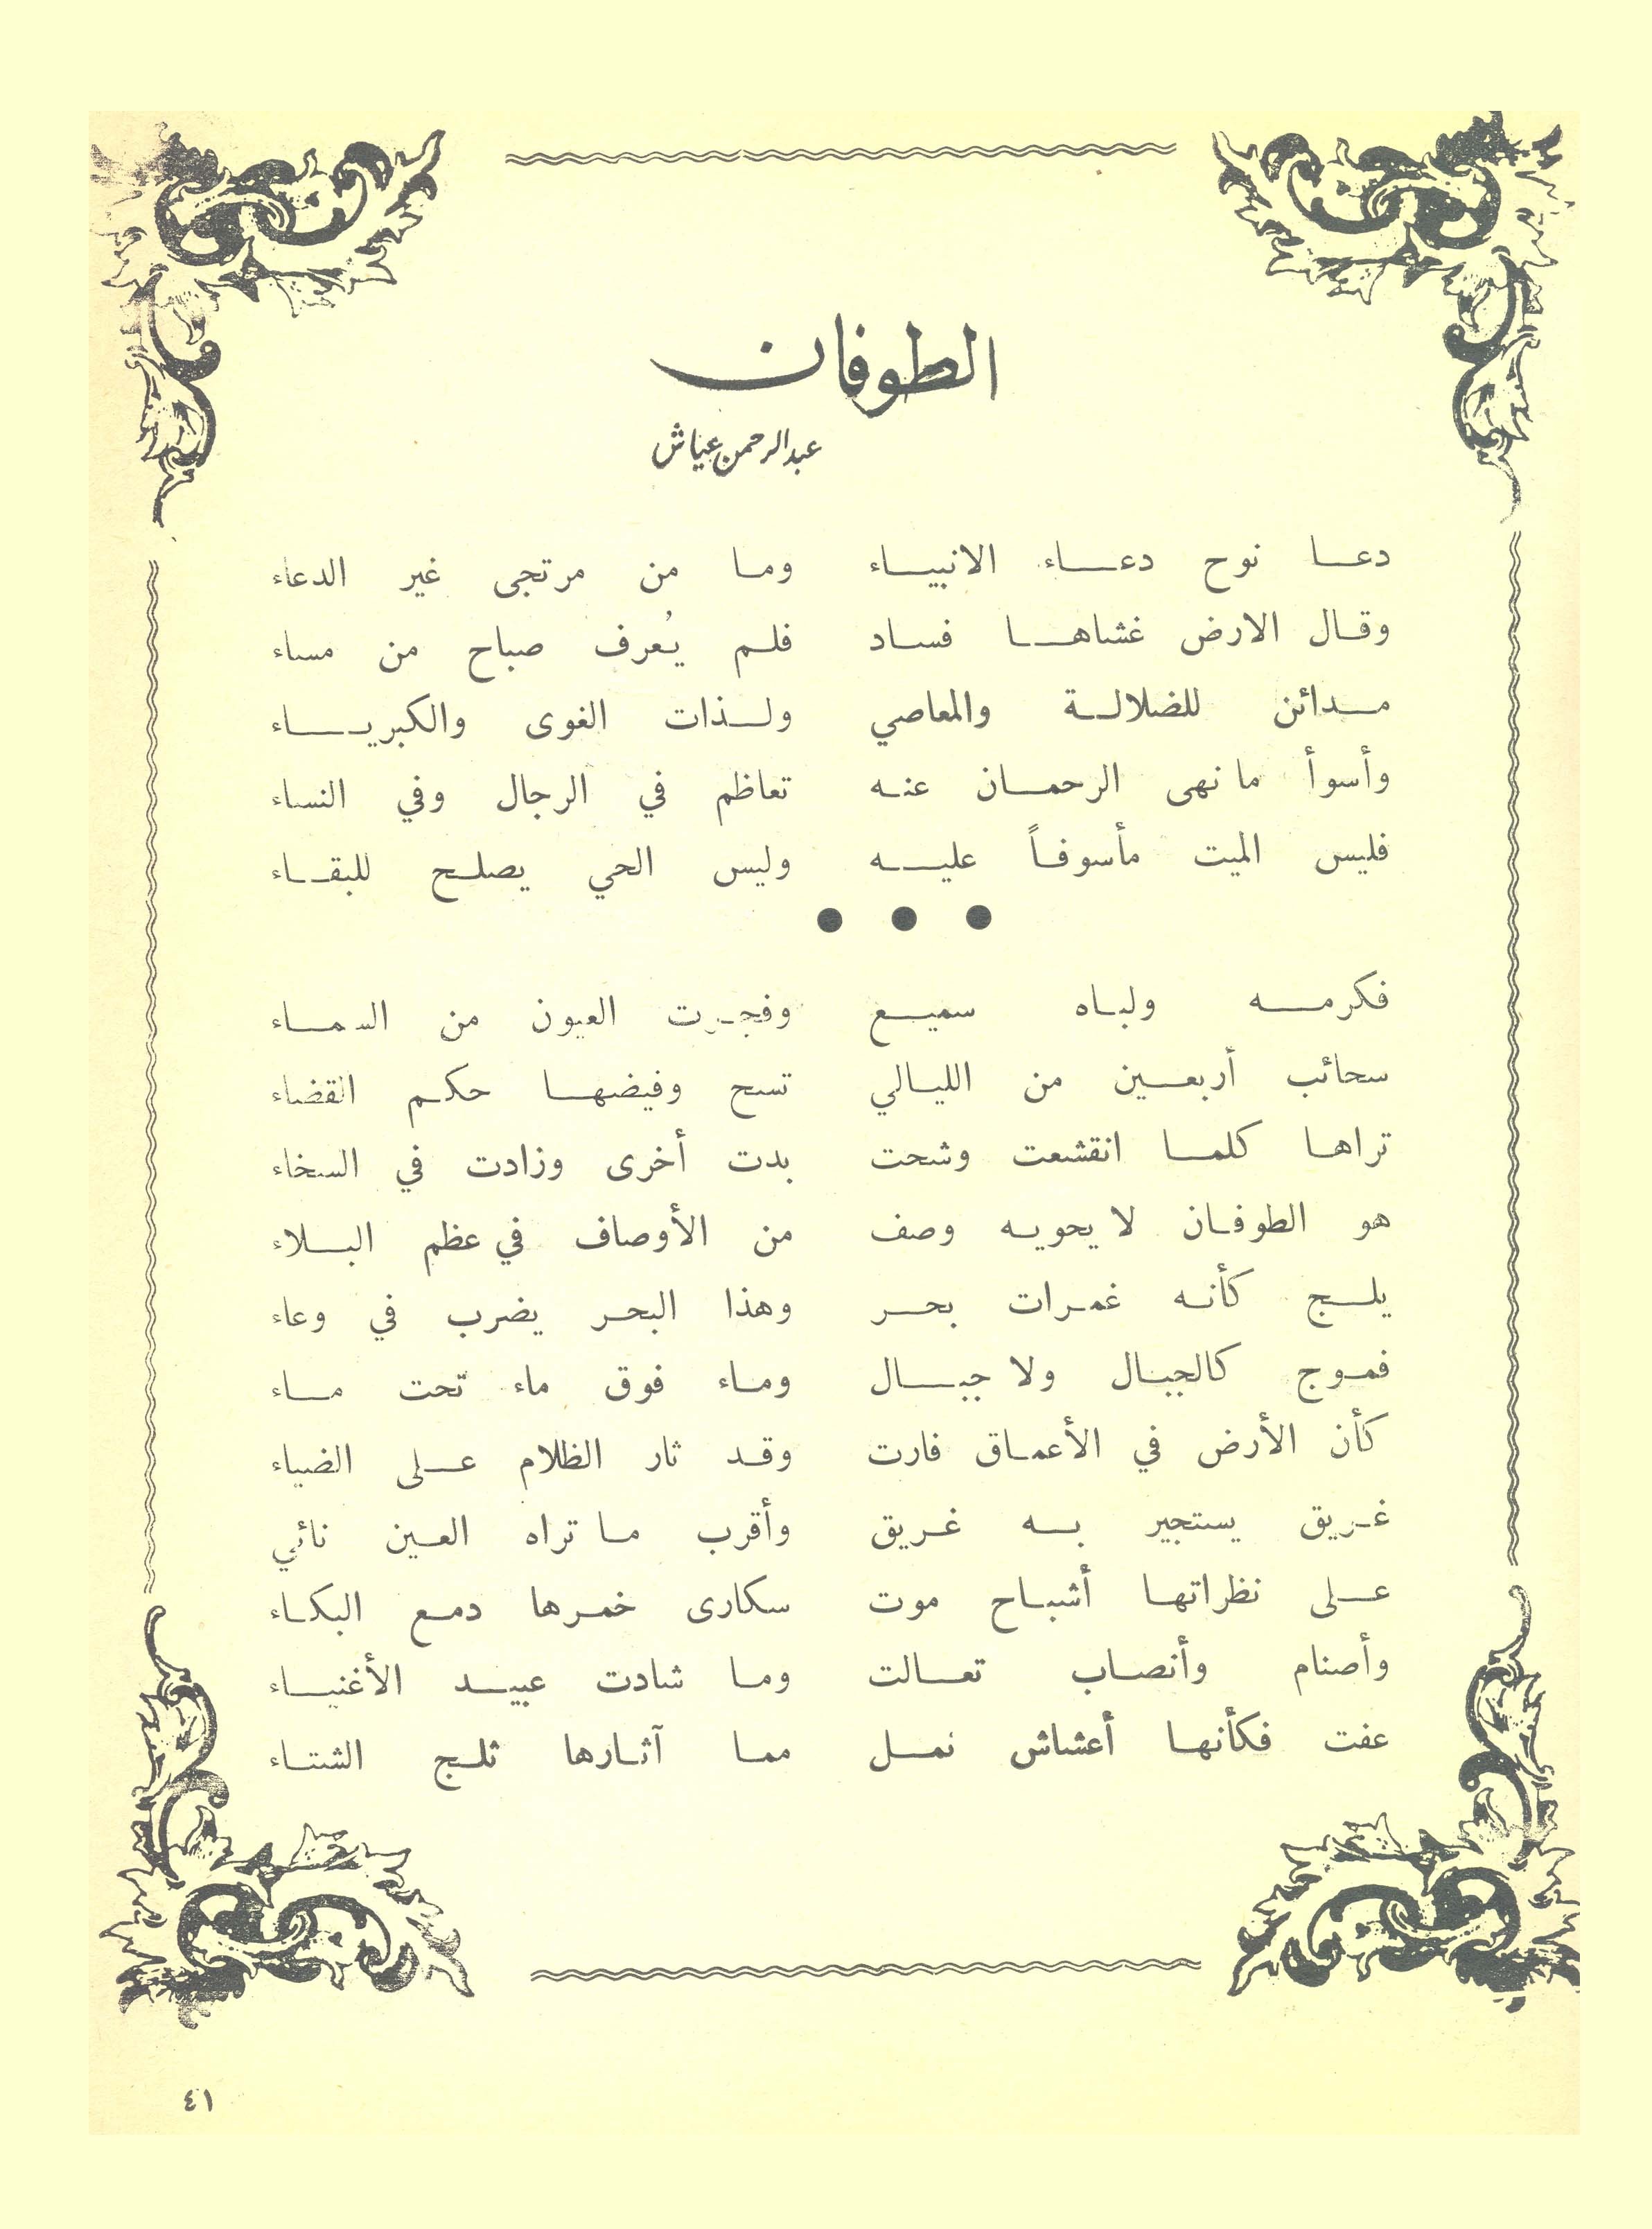 الطوفان
عبدالرحمن عياش
دعا نوح دعاء الانبياء وما من مرتجى غير الدعاء
وقال الارض غشاها فساد فلم يُعرف صباح من مساء
مدائن للضلالة والمعاصي ولذات الغوى والكبرياء
وأسوأ ما نهى الرحمان عنه تعاظم في الرجال وفي النساء
فليس الميت مأسوفاً عليه وليس الحي يصلح للبقاء
● ● ●
فكرمه ولباه سميع وفجرت العيون من السماء
سحائب أربعين من الليالي تسح وفيضها حكم القضاء
تراها كلما انقشعت وشحت بدت أخرى وزادت في السخاء
هو الطوفان لا يحويه وصف من الأوصاف في عظم البلاء
يلج كأنه غمرات بحر وهذا البحر يضرب في وعاء
فموج كالجبال ولا جبال وماء فوق ماء تحت ماء
كأن الأرض في الأعماق فارت وقد ثار الظلام على الضياء
غريق يستجير به غريق وأقرب ما تراه العين نائي
على نظراتها أشباح موت سكارى خمرها دمع البكاء
وأصنام وأنصاب تعالت وما شادت عبيد الأغنياء
عفت فكأنها أعشاش نمل مما آثارها ثلج الشتاء
٤١